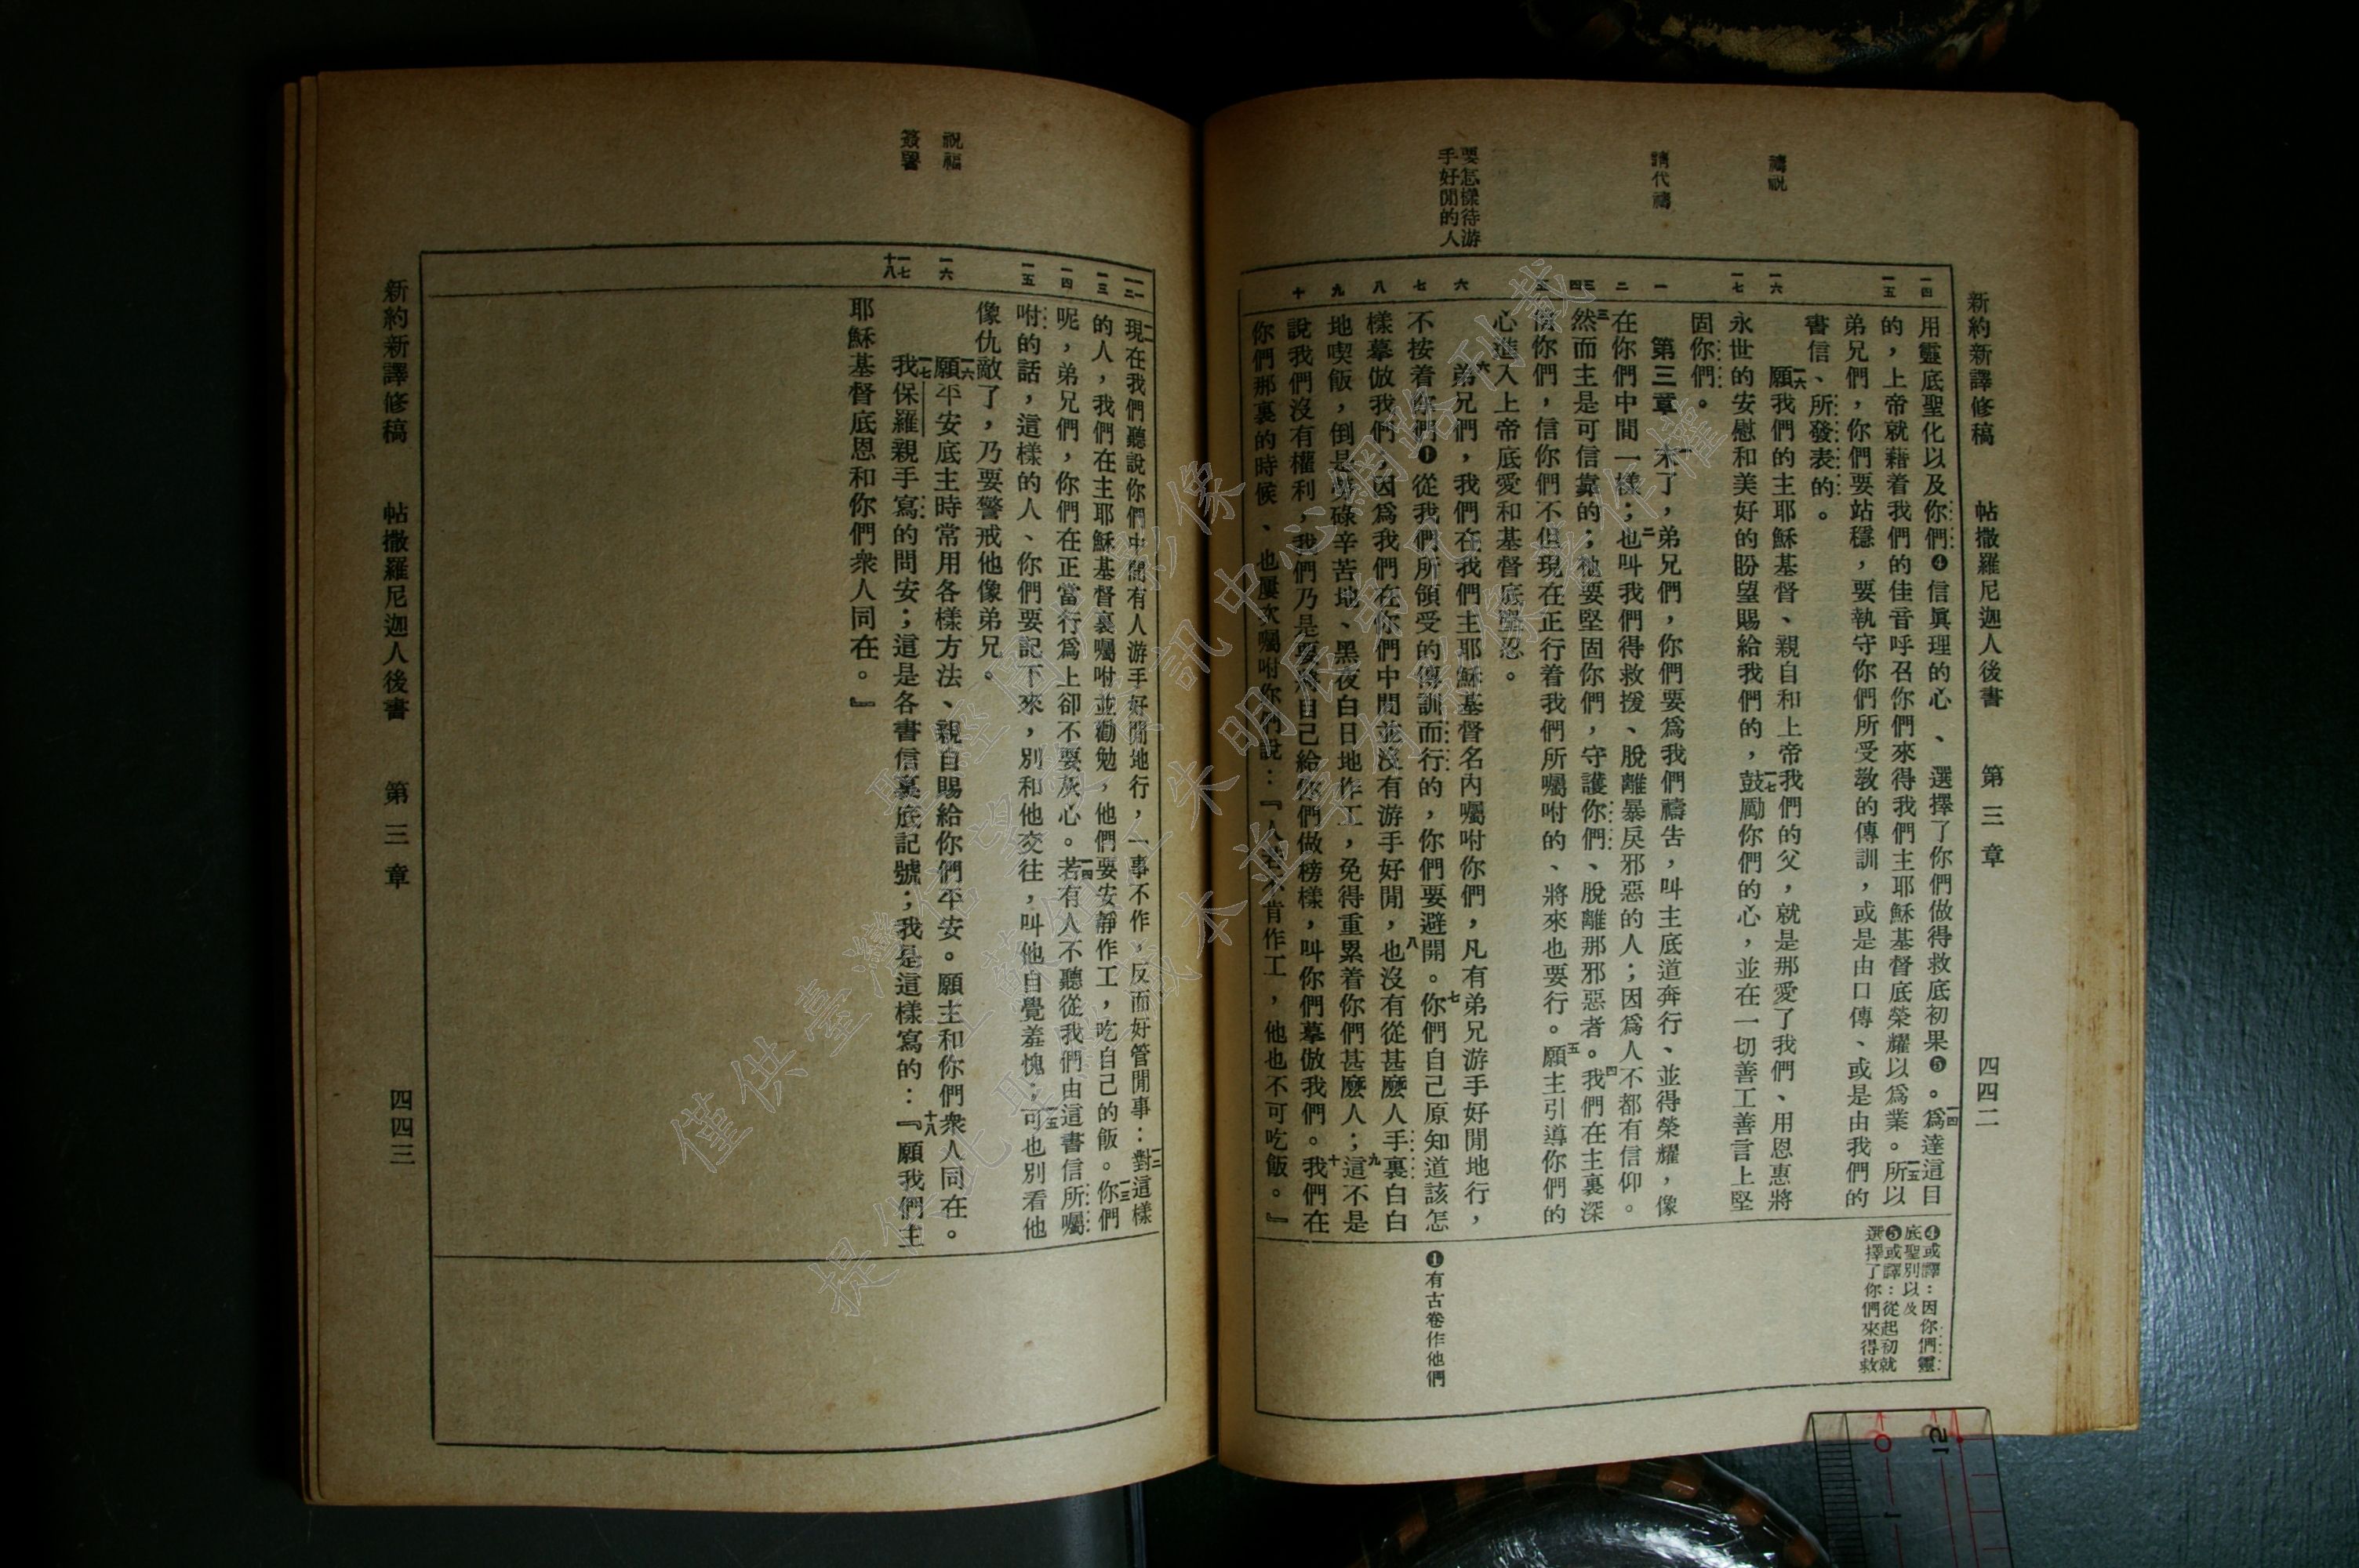 新約新譯修稿　帖撒羅尼迦人後書　第三章　四四二
禱祝
請代禱
要怎樣待游
手好閒的人
一四
用靈底聖化以及你們❹信眞理的心、選擇了你們做得救底初果❺。一四爲達這目
一五
的，上帝就藉着我們的佳音呼召你們來得我們主耶穌基督底榮耀以爲業。一五所以
弟兄們，你們要站穩，要執守你們所受教的傳訓，或是由口傳、或是由我們的
書信、所發表的。
一六
一六願我們的主耶穌基督、親自和上帝我們的父，就是那愛了我們、用恩惠將
一七
永世的安慰和美好的盼望賜給我們的，一七鼓勵你們的心，並在一切善工善言上堅
固你們。
一
第三章　末了，弟兄們，你們要爲我們禱告，叫主底道奔行、並得榮耀，像
二
在你們中間一樣；二也叫我們得救援、脫離暴戾邪惡的人；因爲人不都有信仰。
三四
三然而主是可信靠的；他要堅固你們，守護你們、脫離那邪惡者。四我們在主裏深
五
信你們，信你們不但現在正行着我們所囑咐的、將來也要行。五願主引導你們的
心進入上帝底愛和基督底堅忍。
六
六弟兄們，我們在我們主耶穌基督名內囑咐你們，凡有弟兄游手好閒地行，
七
不按着你們❶從我們所領受的傳訓而行的，你們要避開。七你們自己原知道該怎
八
樣摹倣我們，因爲我們在你們中間並沒有游手好閒，八也沒有從甚麼人手裏白白
九
地喫飯，倒是勞碌辛苦地、黑夜白日地作工，免得重累着你們甚麼人；九這不是
說我們沒有權利，我們乃是要將自己給你們做榜樣，叫你們摹倣我們。十我們在
十
你們那裏的時候、也屢次囑咐你們說：『人若不肯作工，他也不可吃飯。』
❹或譯：因你們靈
底聖別以及
❺或譯：從起初就
選擇了你們來得救
❶有古卷作他們
新約新譯修稿　帖撒羅尼迦人後書　第三章　四四三
祝福
簽署
一一
一二
一一現在我們聽說你們中間有人游手好閒地行，一事不作，反而好管閒事：一二對這樣
一三
的人，我們在主耶穌基督裏囑咐並勸勉，他們要安靜作工，吃自己的飯。一三你們
一四
呢，弟兄們，你們在正當行爲上卻不要灰心。一四若有人不聽從我們由這書信所囑
一五
咐的話，這樣的人、你們要記下來，別和他交往，叫他自覺羞愧；一五可也別看他
像仇敵了，乃要警戒他像弟兄。
一六
一六願平安底主時常用各樣方法、親自賜給你們平安。願主和你們衆人同在。
一七
十八
一七我保羅親手寫的問安；這是各書信裏底記號；我是這樣寫的：十八『願我們主
耶穌基督底恩和你們衆人同在。』
僅供臺灣信望愛資訊中心網路刊載
0
12
1